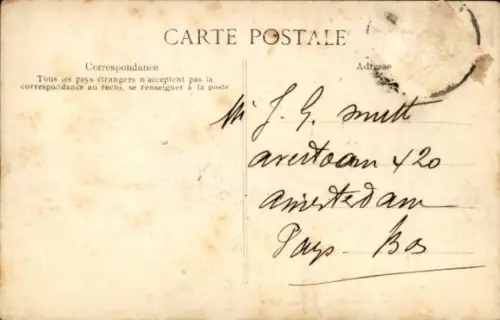 CARTE POSTALE
Correspondance
Tous les pays étrangers n'acceptent pas la
correspondance au recto, se renseigner à la poste
Adresse
Mr J. G. Smitt
420
Amsterdam
Pays-Bas